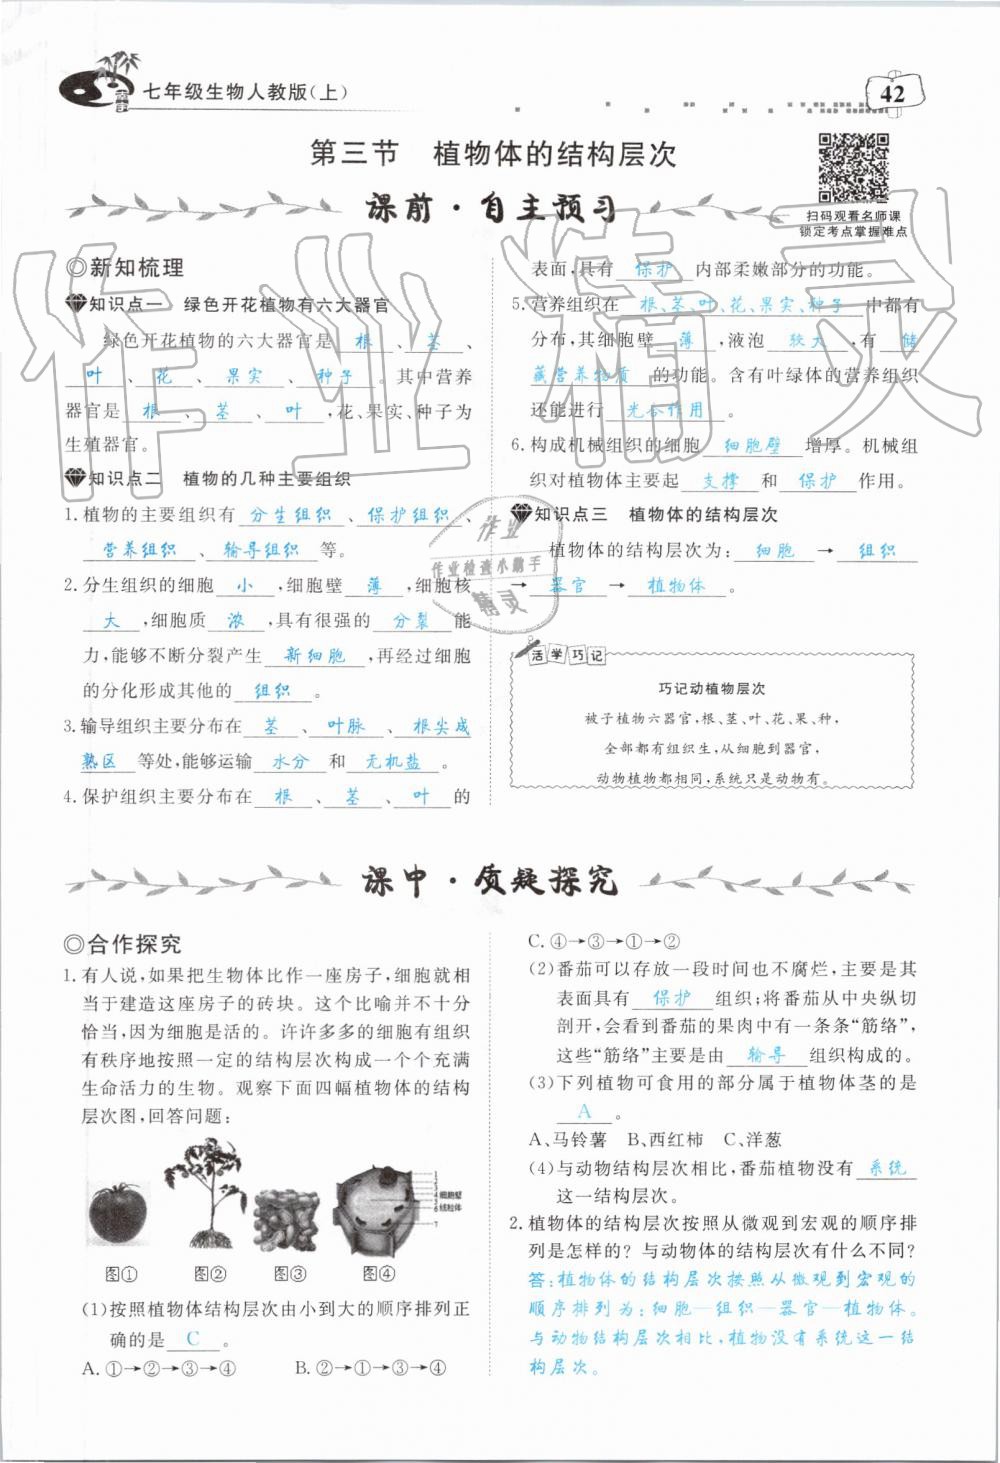 七年级生物人教版(上)
42
第三节 植物体的结构层次
扫码观看名师课
锁定考点掌握难点
课前·自主预习
◎新知梳理
知识点一 绿色开花植物有六大器官
绿色开花植物的六大器官是 根 、 茎 、
叶 、 花 、 果实 、 种子 。其中营养
器官是 根 、 茎 、 叶 ,花、果实、种子为
生殖器官。
知识点二 植物的几种主要组织
1.植物的主要组织有 分生组织 、 保护组织 、
营养组织 、 输导组织 等。
2.分生组织的细胞 小 ,细胞壁 薄 ,细胞核
大 ,细胞质 浓 ,具有很强的 分裂 能
力,能够不断分裂产生 新细胞 ,再经过细胞
的分化形成其他的 组织 。
3.输导组织主要分布在 茎 、 叶脉 、 根尖成
熟区 等处,能够运输 水分 和 无机盐 。
4.保护组织主要分布在 根 、 茎 、 叶 的
表面,具有 保护 内部柔嫩部分的功能。
5.营养组织在 根、茎、叶、花、果实、种子 中都有
分布,其细胞壁 薄 ,液泡 较大 ,有 储
藏营养物质 的功能。含有叶绿体的营养组织
还能进行 光合作用 。
6.构成机械组织的细胞 细胞壁 增厚。机械组
织对植物体主要起 支撑 和 保护 作用。
知识点三 植物体的结构层次
植物体的结构层次为: 细胞 → 组织
→ 器官 → 植物体 。
活学巧记
巧记动植物层次
被子植物六器官,根、茎、叶、花、果、种,
全部都有组织生,从细胞到器官,
动物植物都相同,系统只是动物有。
课中·质疑探究
◎合作探究
1.有人说,如果把生物体比作一座房子,细胞就相
当于建造这座房子的砖块。这个比喻并不十分
恰当,因为细胞是活的。许许多多的细胞有组织
有秩序地按照一定的结构层次构成一个个充满
生命活力的生物。观察下面四幅植物体的结构
层次图,回答问题:
1
2
3
4
细胞壁
5
线粒体
6
7
图① 图② 图③ 图④
(1)按照植物体结构层次由小到大的顺序排列正
确的是 C 。
A.①→②→③→④ B.②→①→③→④
C.④→③→①→②
(2)番茄可以存放一段时间也不腐烂,主要是其
表面具有 保护 组织;将番茄从中央纵切
剖开,会看到番茄的果肉中有一条条“筋络”,
这些“筋络”主要是由 输导 组织构成的。
(3)下列植物可食用的部分属于植物体茎的是
A 。
A、马铃薯 B、西红柿 C、洋葱
(4)与动物结构层次相比,番茄植物没有 系统
这一结构层次。
2.植物体的结构层次按照从微观到宏观的顺序排
列是怎样的? 与动物体的结构层次有什么不同?
答:植物体的结构层次按照从微观到宏观的
顺序排列为:细胞—组织—器官—植物体。
与动物体结构层次相比,植物没有系统这一结
构层次。
作业精灵
作业
作业检查小助手
精灵